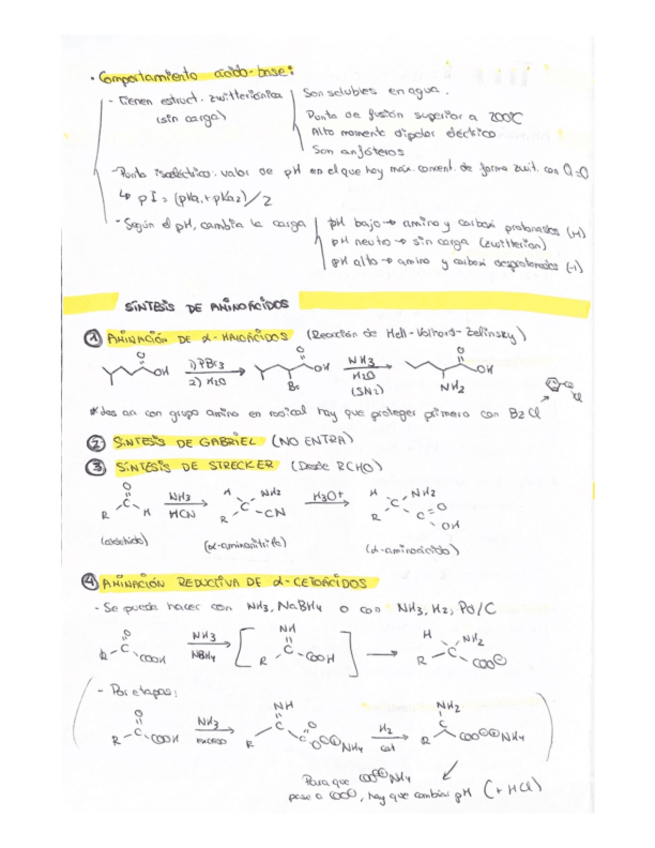 · Comportamiento ácido-base:
- Tienen estruct. zwitteriónica (sin carga)
Son solubles en agua.
Punto de fusión superior a 200℃
Alto momento dipolar eléctrico
Son anfóteros
- Punto isoeléctrico: valor de pH en el que hay máx. concent. de forma zwit. con Q=0
↳ pI = (pKa1 + pKa2)/2
- Según el pH, cambia la carga
pH bajo → amino y carboxi protonados (+1)
pH neutro → sin carga (zwitterion)
pH alto → amino y carboxi desprotonados (-1)
SÍNTESIS DE AMINOÁCIDOS
① AMINACIÓN DE α-HALOÁCIDOS (Reacción de Hell-Volhard-Zelinsky)
O OH 1) PBr3 2) H2O O OH Br NH3 H2O (SN2) O OH NH2
* des aa con grupo amino en radical hay que proteger primero con BzCl
② SÍNTESIS DE GABRIEL (NO ENTRA)
③ SÍNTESIS DE STRECKER (Desde RCHO)
O R C H NH3 HCN H NH2 R C CN H3O+ H NH2 R C C=O OH
(aldehído) (α-aminonitrilo) (α-aminoácido)
④ AMINACIÓN REDUCTIVA DE α-CETOÁCIDOS
- Se puede hacer con NH3, NaBH4 o con NH3, H2, Pd/C
O R-C COOH NH3 NBH4 [ NH R C COOH ] → H NH2 R C COO⊖
- Por etapas:
O R-C COOH NH3 exceso NH R C O O⊖⊕NH4 H2 cat NH2 R C COO⊖⊕NH4
Para que COO⊖NH4
pase a COO⊖, hay que cambiar pH (+HCl)